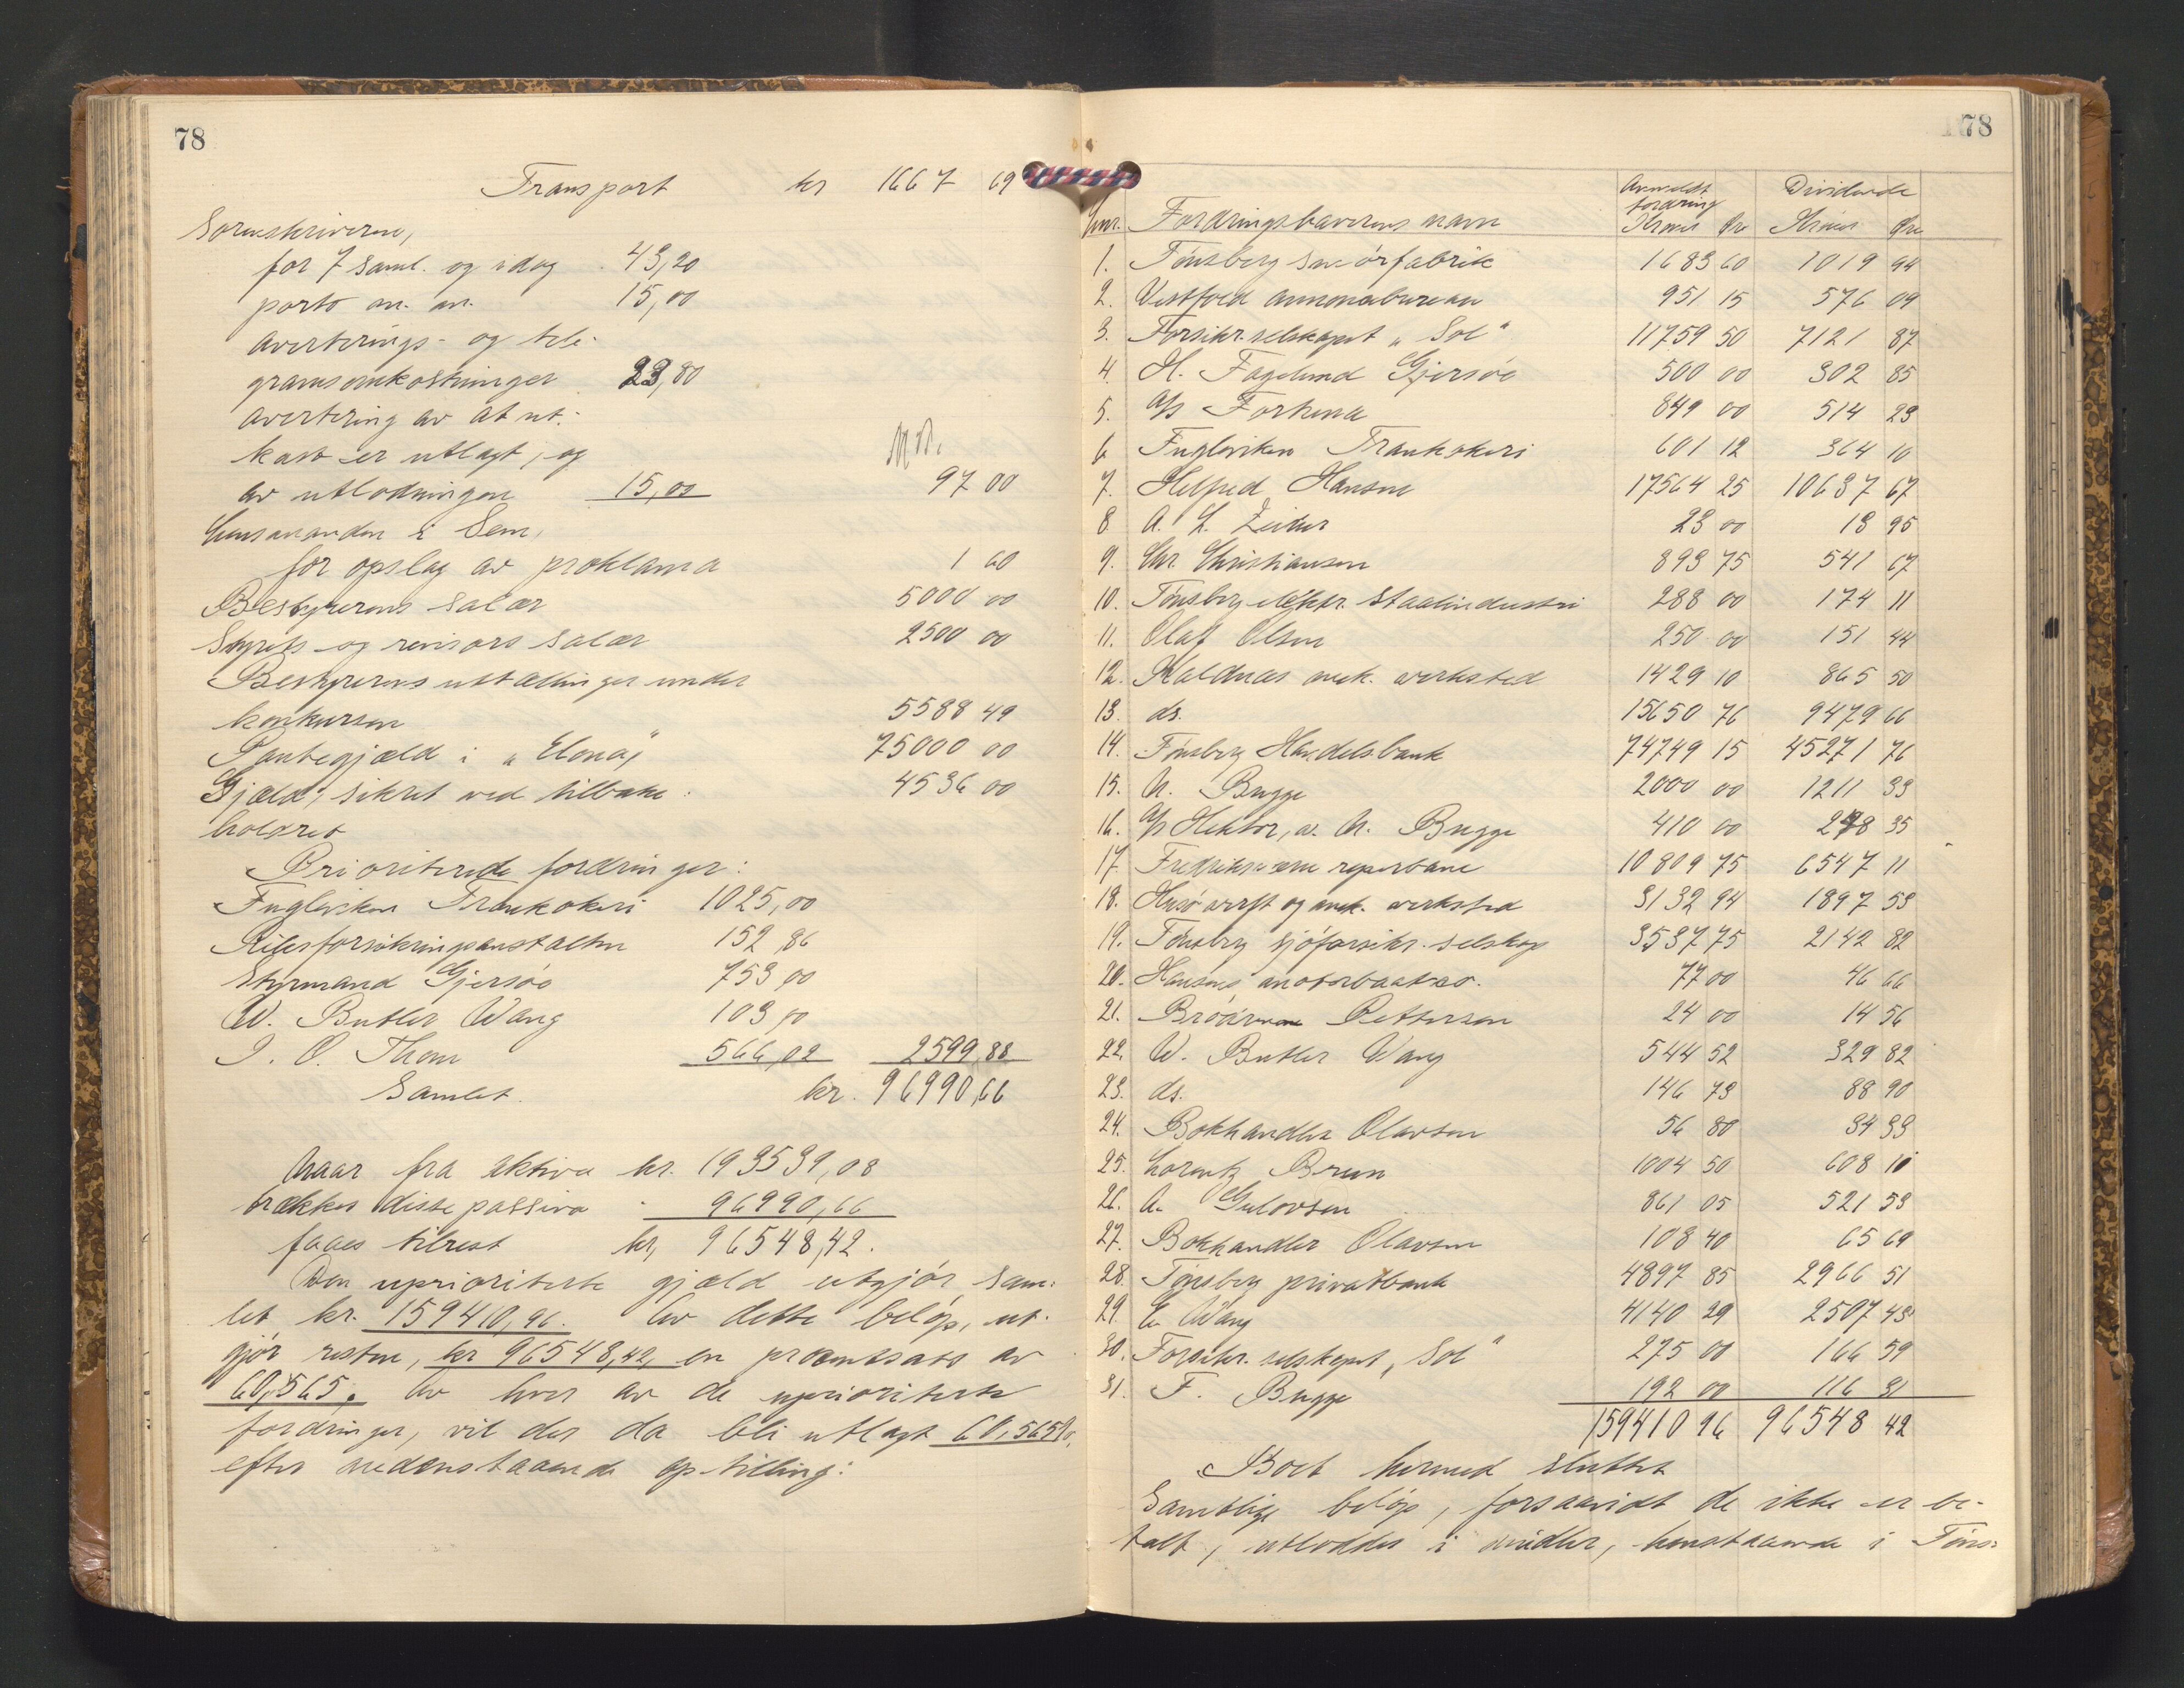 78
Transport kr 1667 69
Sorenskriveren,
for 7 saml. og idag 43,20
porto m. m. 15,00
averterings- og tele-
gramomkostninger 23,80
avertering av at ut-
kast er utlagt, og
av utlodningen 15,00 97 00
Lensmanden i Sem,
for opslag av proklama 1 60
Bestyrerens salær 5000 00
Styrets og revisors salær 2500 00
Bestyrerens uttællinger under
konkursen 5588 49
Pantegjæld i "Elona" 75000 00
Gjæld, sikret ved tilbake- 4536 00
holdret
Prioriterede fordringer:
Fugleviken Trankokeri 1025,00
Riksforsikringsanstalten 152,86
Styrmand Gjersøe 753,00
W. Butler Wang 103,00
J. O. Thom 566,02 2599,88
Samlet. kr. 96990,66
Naar fra aktiva kr. 193539,08
trækkes disse passiva - 96990,66
faaes tilrest kr, 96548,42.
Den uprioriterte gjæld utgjør sam-
let kr. 159410,96. Av dette beløp, ut-
gjør resten, kr 96548,42, en procentsats av
60,565. Av hver av de uprioriterte
fordringer, vil der da bli utlagt 60,565%,
efter nedenstaaende opstilling:
178
Anmeldt fordring Dividende
Lnr. Fordringshaverens navn Kroner Øre Kroner Øre
1. Tønsberg smørfabrik 1683 60 1019 94
2. Vestfold annoncebureau 951 15 576 09
3. Forsikr. selskapet "Sol" 11759 50 7121 87
4. H. Fagelund Gjersøe 500 00 302 85
5. A/s Fortuna 849 00 514 23
6 Fugleviken Trankokeri 601 12 364 10
7. Helfred Hansen 17564 25 10637 67
8. A. L. Zeiner 23 00 13 95
9. Chr. Christiansen 893 75 541 67
10. Tønsberg elektr. staalindustri 288 00 174 11
11. Olaf Olsen 250 00 151 44
12. Kaldnæs mek. verksted 1429 10 865 50
13. ds. 15650 76 9479 66
14. Tønsberg Handelsbank 74749 15 45271 76
15. N. Bugge 2000 00 1211 33
16. A/s Hektor, v. N. Bugge 410 00 248 35
17. Fredriksværn reperbane 10809 75 6547 11
18. Husø verft og mek. verksted 3132 94 1897 53
19. Tønsberg sjøforsikr. selskap 3537 75 2142 82
20. Hansens motorbaatko. 77 00 46 66
21. Brødrene Pettersen 24 00 14 56
22. W. Butler Wang 544 52 329 82
23. ds. 146 73 88 90
24. Bokhandler Olavsen 56 80 34 33
25. Lorentz Bruun 1004 50 608 10
26. A. Gulovsen 861 05 521 53
27. Bokhandler Olavsen 108 40 65 69
28. Tønsberg privatbank 4897 85 2966 51
29. E. Wang 4140 29 2507 43
30. Forsikr. selskapet "Sol" 275 00 166 59
31. F. Bugge 192 00 116 31
159410 96 96548 42
Boet hermed sluttet
Samtlige beløp, forsaavidt de ikke er be-
talt, utloddes i midler, henstaaende i Tøns-